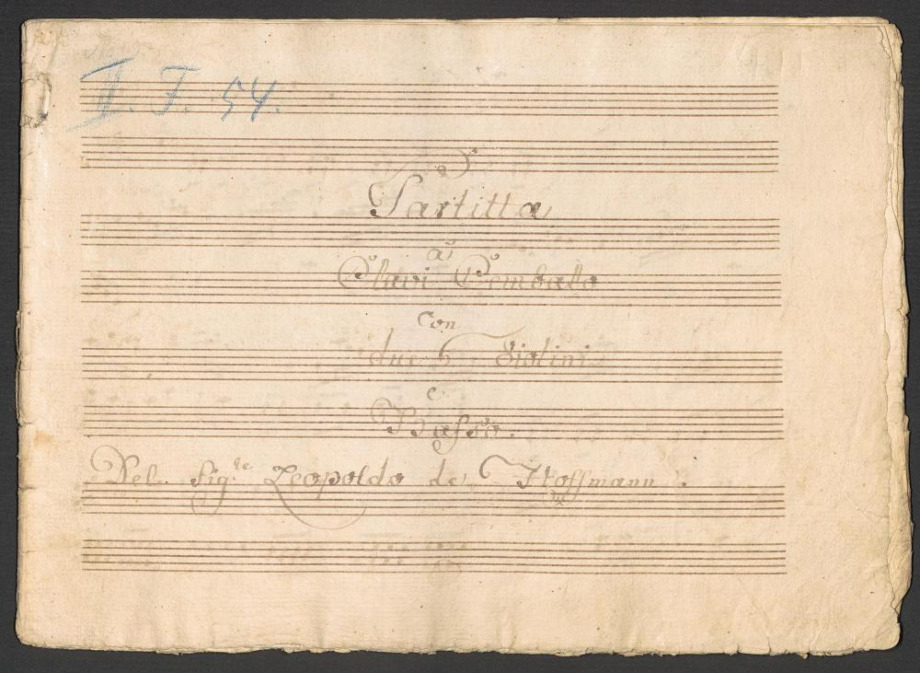 II. F. 54.
Partitta
à
Clavi Cembalo
Con
due Violini
e
Basso.
Del Sig.re Leopoldo de Hoffmann.